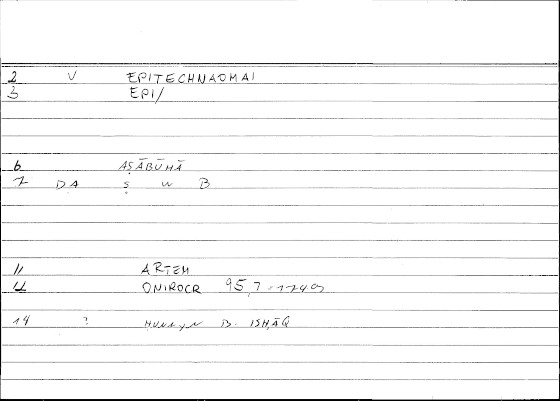 2 V EPITECHNAOMAI
3 EPI/
6 AṢĀBŪHĀ
7 DA ṣ w B
11 ARTEM
12 ONIROCR 95,7
14 ? HUNAYN B. ISḤĀQ